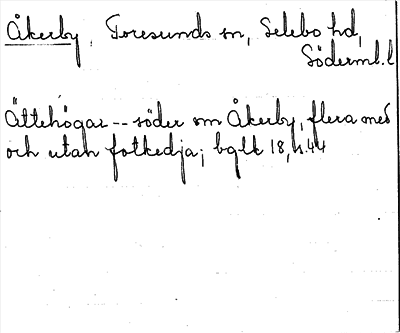 Åkerby, Toresunds sn, Selebo hd,
Söderml. l
Ättehögar -- söder om Åkerby, flera med
och utan fotkedja; bglk 18, 4.44